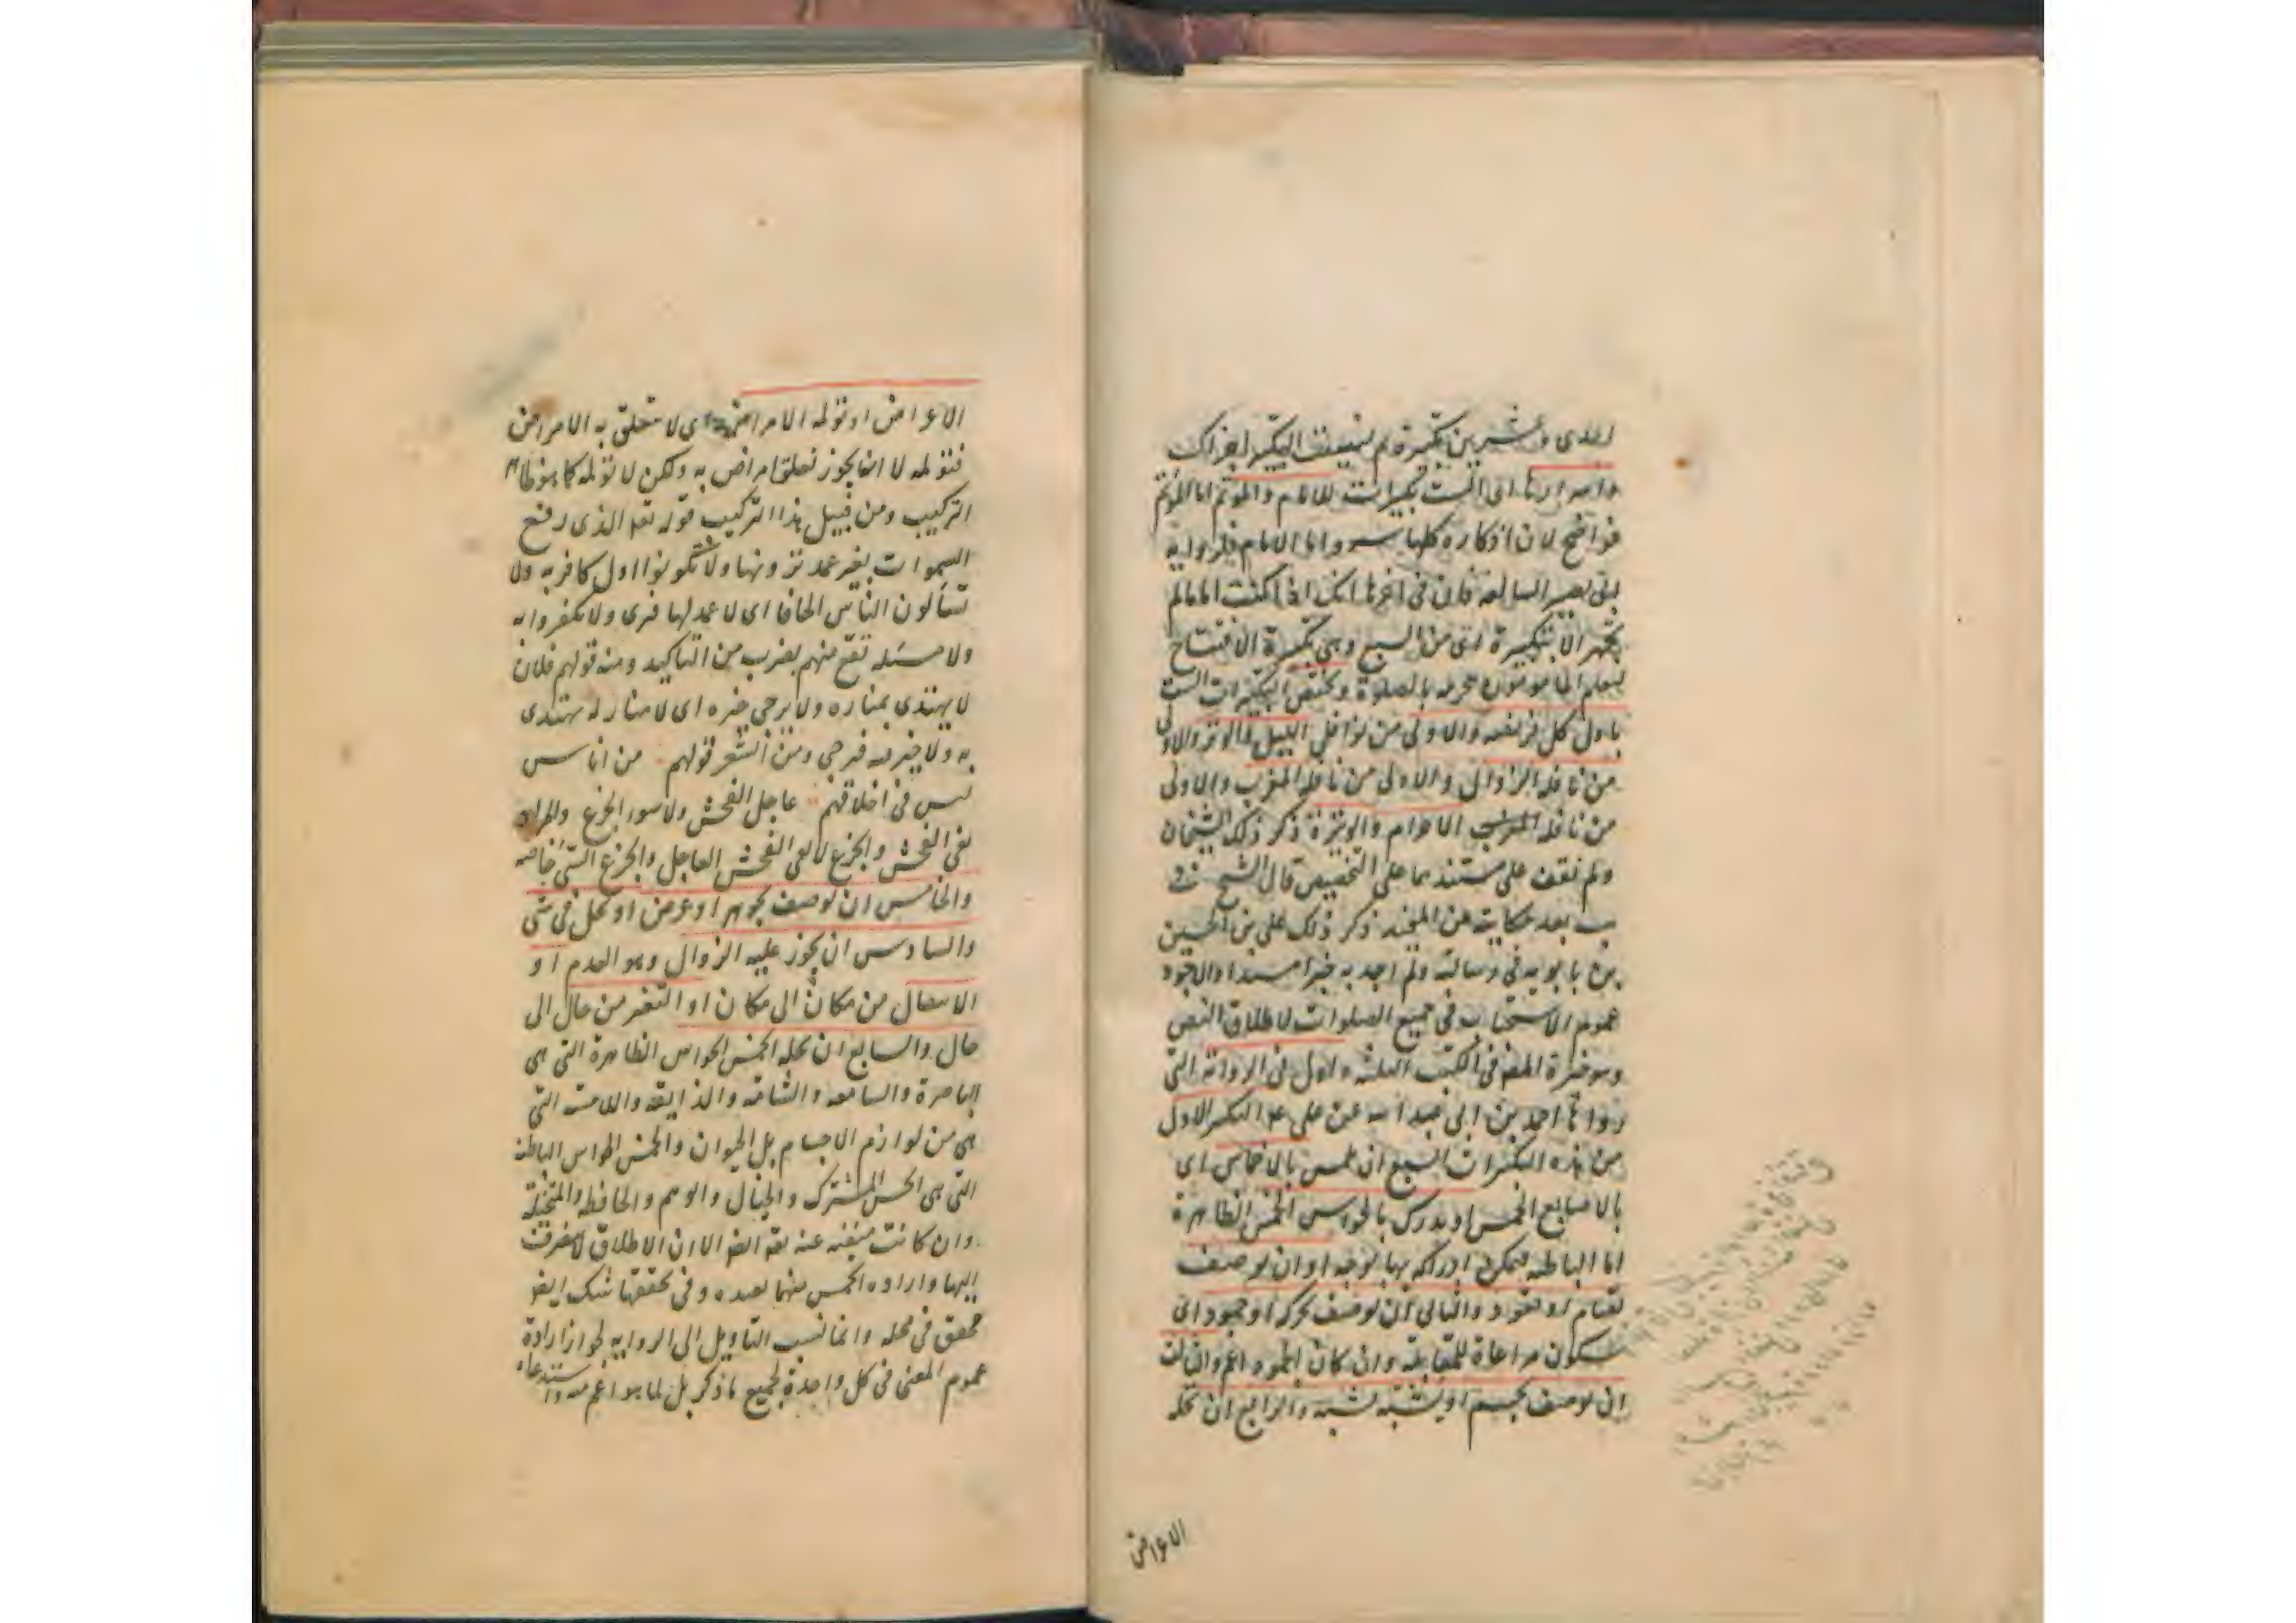 احدى وعشرين تكبيرة ثم نسيت التكبير اجزاك
واسرارها اى الست تكبيرات للامام والموتم اما الموتم
فواضح لان اذكاره كلها سر واما الامام فلرواية
ابى بصير السالفة فان فى اخرها انك اذا كنت اماما لم
تجهر الا بتكبيرة اى من السبع وهى تكبيرة الافتتاح
ليعلم المامومون تحرمه بالصلوة وتختص التكبيرات الست
باول كل فريضة والاولى من نوافل الليل والوتر والاولى
من نافلة الزوال والاولى من نافلة المغرب والاولى
من نافلة الاحرام والوتيرة ذكر ذلك الشيخان
ولم نقف على مستندهما على التخصيص قال الشيخ فى
يب بعد حكايته عن المفيد ذكر ذلك على بن الحسين
بن بابويه فى رسالته ولم اجد به خبرا مسندا والاجود
عموم الاستحباب فى جميع الصلوات لاطلاق النص
وهو خيرة المص فى الكتب الثلثة وليقل فى الرواية التى
رواها احمد بن ابى عبد الله عن على ع التكبير الاول
من هذه التكبيرات السبع ان يلمس بالاخماس اى
بالاصابع الخمس او يدرك بالحواس الخمس الظاهرة
اما الباطنة فيمكن ادراكه بها بوجه او ان يوصف
بقيام او قعود والثانى ان يوصف بحركة او جمود اى
سكون مراعاة للمقابلة وان كان الجمود اعم والثالث
ان يوصف بجسم او يشبه بشبه والرابع ان تحله
الاعراض
الاعراض او تولمه الامراض اى لا تتعلق به الامراض
فتولمه لا انه يجوز تعلق امراض به ولكن لا تولمه كما هو ظاهر
التركيب ومن قبيل هذا التركيب قوله تعالى الذى رفع
السموات بغير عمد ترونها ولا تكونوا اول كافر به ولا
تسألون الناس الحافا اى لا عمد لها فترى ولا تكفروا به
ولا مسئلة تقع منهم بضرب من التاكيد ومنه قولهم فلان
لا يهتدى بمناره ولا يرجى خيره اى لا منار له يهتدى
به ولا خير فيه فيرجى ومن الشعر قولهم من اناس
ليس فى اخلاقهم عاجل الفحش ولا سوء الجزع والمراد
نفى الفحش والجزع لا نفى الفحش العاجل والجزع السئ خاصة
والخامس ان يوصف بجوهر او عرض او يحل فى شئ
والسادس ان يجوز عليه الزوال وهو العدم او
الانتقال من مكان الى مكان او التغير من حال الى
حال والسابع ان تحله الخمس الحواس الظاهرة التى هى
الباصرة والسامعة والشامة والذايقة واللامسة التى
هى من لوازم الاجسام بل الحيوان والخمس الحواس الباطنة
التى هى الحس المشترك والخيال والوهم والحافظة والمتخيلة
وان كانت منفية عنه تعالى ايضا الا ان الاطلاق لا ينصرف
اليها وارادة الخمس منهما بعيدة وفى تحققها شك ايضا
محقق فى محله وانما نسب التاويل الى الرواية لجواز ارادة
عموم المعنى فى كل واحدة لجميع ما ذكر بل لما هو اعم منه واستدعاء